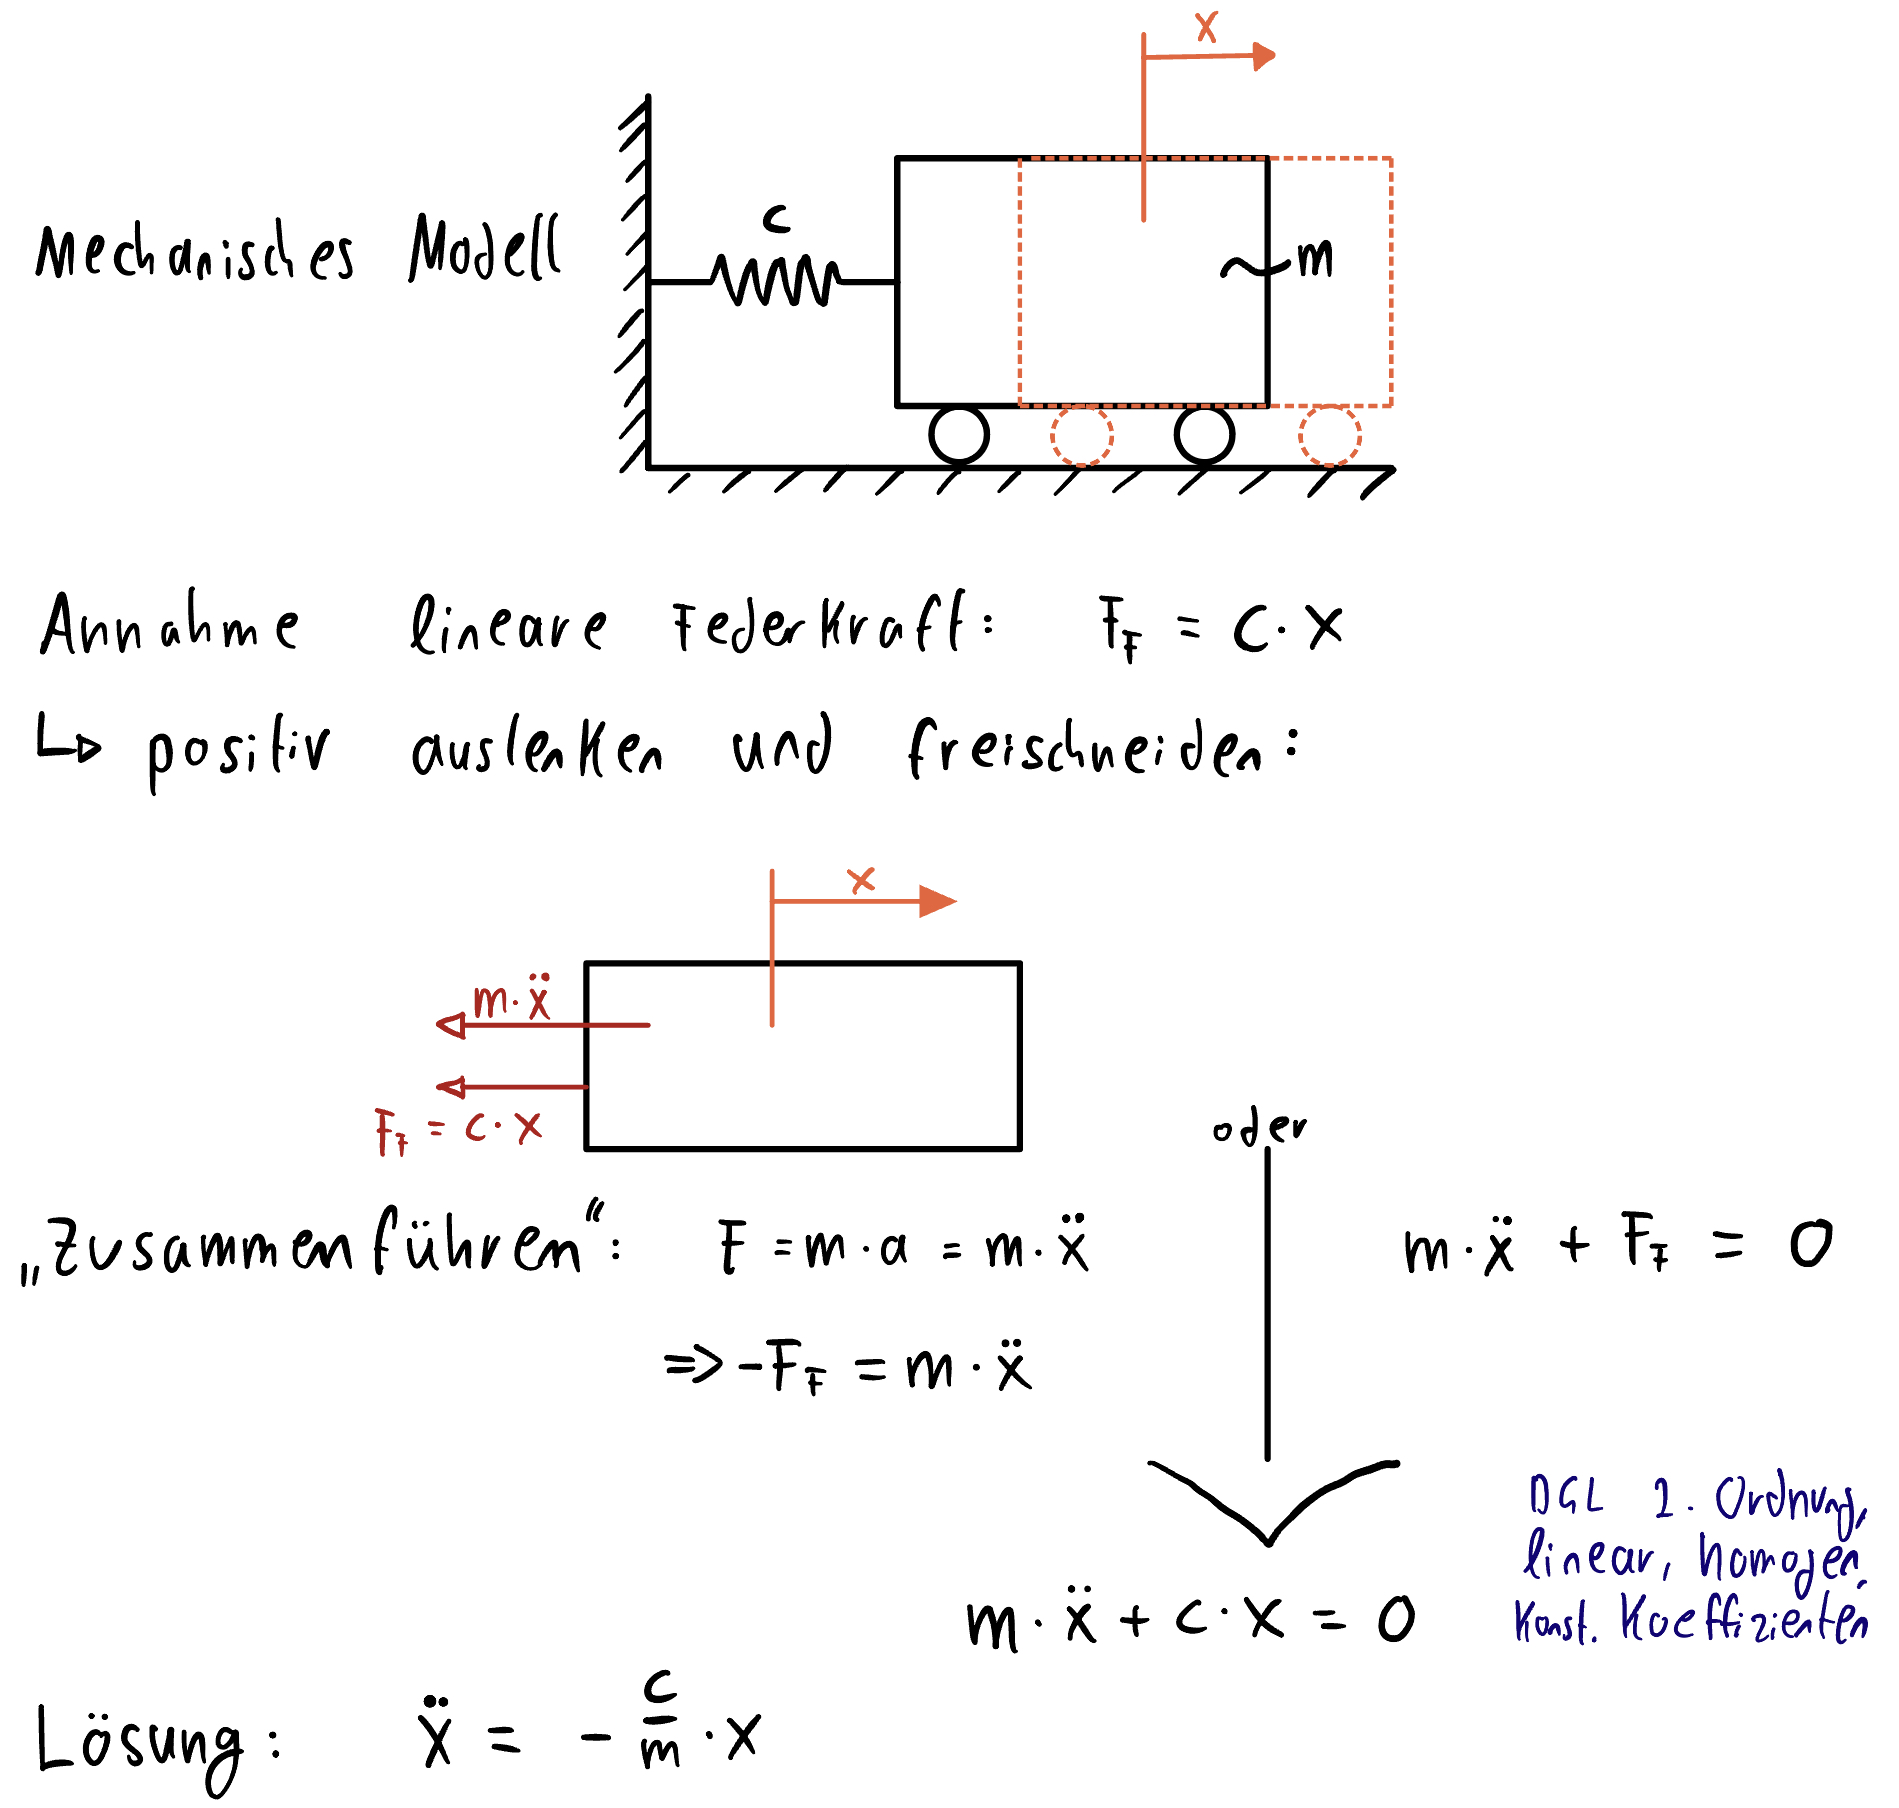 x
c
Mechanisches Modell
m
Annahme lineare Federkraft: F_F = c · x
↳ positiv auslenken und freischneiden:
x
m · ẍ
F_F = c · x
oder
„Zusammenführen“: F = m · a = m · ẍ
m · ẍ + F_F = 0
⇒ -F_F = m · ẍ
DGL 2. Ordnung,
linear, homogen,
konst. Koeffizienten
m · ẍ + c · x = 0
Lösung: ẍ = - c/m · x